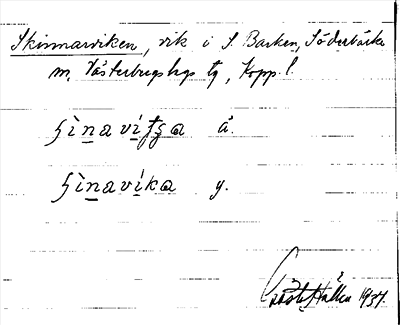 Skinnarviken, vik i S. Barken, Söderbärke
m, Västerbergslags tg, Kopp. l.
ʂìnavíʈʂa ä.
ʂìnavíka y.
Hållen 1937.